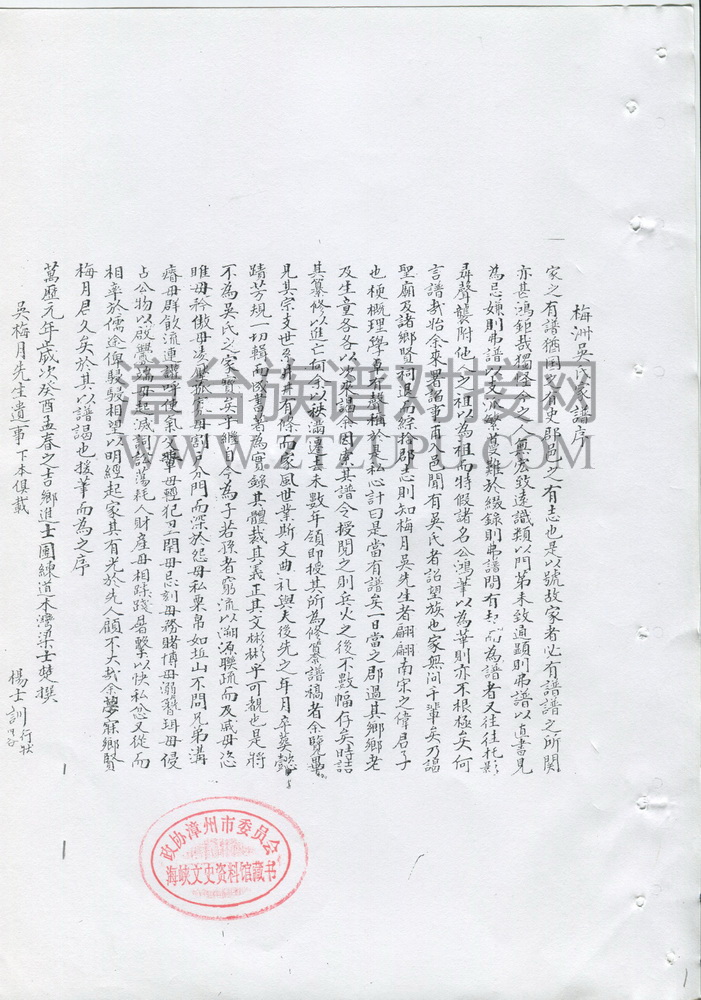 梅洲吳氏家譜序
家之有譜猶國之有史郡邑之有志也是以號故家者必有譜譜之所關
亦甚鴻鉅哉獨怪今之人無宏致遠識類以門第未致通顯則弗譜以直書見
為忌嫌則弗譜以支派繁蔓難於綴錄則弗譜間有 而為譜者又往往托影
尋聲襲附他人之祖以為祖而特假諸名公鴻筆以為華則亦不根極矣何
言譜哉始余來署詔事再入邑聞有吳氏者詔望族也家無問千輩矣乃謁
聖廟及諸鄉賢祠退而綜拾郡志則知梅月吳先生者翩翩南宋之偉君子
也梗概理學車有聲稱於是私心計曰是當有譜矣一日當之郡過其鄉鄉老
及生童各各以次來謁余因索其譜令授閱之則兵火之後不數幅存矣時詰
其纂修以進亡何余以秩滿遷去未數年領即授其所為修纂譜稿者余覽畢
見其宗支世系井井有條而家風世業斯文典礼與夫後先之年月卒葬懿
蹟芳規一切輯而成書著為實錄其體裁其義正其文彬彬乎可觀也是將
不為吳氏之家寶矣乎繼自今為子若孫者窮流以溯源聯疏而及戚毋恣
睢毋矜傲毋凌 毋割戶分門而深於怨毋私粟帛如坵山不問兄弟溝
瘠毋群飲流連 呼使氣 毋輕犯卫閑毋忌刻毋務賭博毋溺聲珥毋侵
占公物以啟釁端毋起滅詞訟蕩耗人財產毋相蹂踐暑擊以快私忿又從而
相率於儒途俾駸駸相望以明經起家其有光於先人顧不大哉余夢寐鄉賢
梅月君久矣於其以譜謁也援筆而為之序
萬歷元年歲次癸酉孟春之吉鄉進士團練道木灣梁士楚撰
吳梅月先生遺事 下本俱載 楊士訓 行狀
政协漳州市委员会
海峡文史资料馆藏书
臺台族谱对接网
ZTZUPU.COM
1